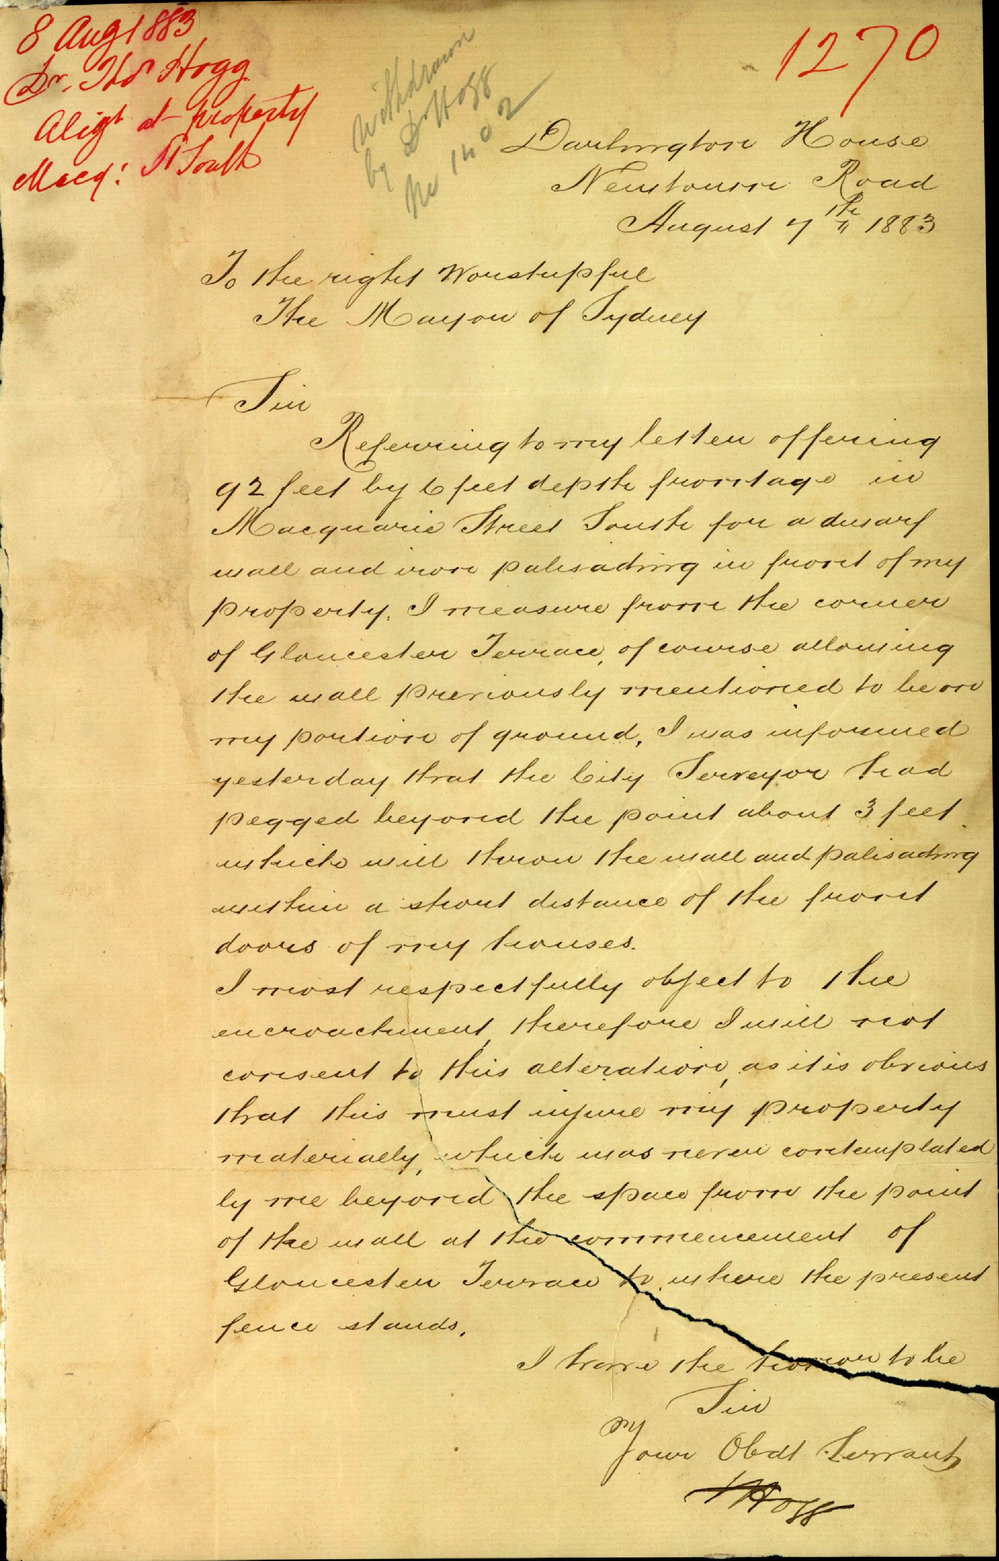 8 Aug 1883
Dr. Thos Hogg
Aligt at property
Macq: St South
Withdrawn
by Dr Hogg
1270
Darlington House
Newtown Road
August 7th 1883
To the right Worshipful
The Mayor of Sydney
Sir
Referring to my letter offering
92 feet by 6 feet depth frontage in
Macquarie Street South for a dwarf
wall and iron palisading in front of my
property. I measure from the corner
of Gloucester Terrace, of course allowing
the wall previously mentioned to be on
my portion of ground, I was informed
yesterday that the City Serveyor had
pegged beyond the point about 3 feet
which will throw the wall and palisading
within a short distance of the front
doors of my houses.
I most respectfully object to the
encroachment, therefore I will not
consent to this alteration, as it is obvious
that this must injure my property
materially, which was never contemplated
by me beyond the space from the point
of the wall at the commencement of
Gloucester Terrace to where the present
fence stands.
I have the honor to be
Sir
Your Obdt Servant
THogg